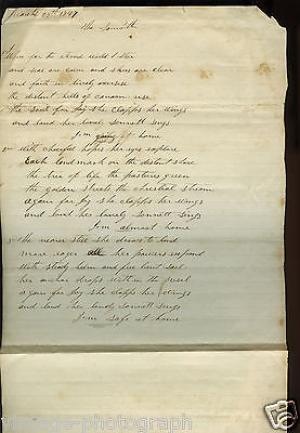 March 29th 1897
The Sonnett
When far
and seas are calm and skys are clear
and faith in lively exersise
the distant hills of canaan rise
the soul for joy she clapps her wings
and loud her lovely sonnett sings
I'm going home
2 with cheerful hopes her eyes explore
Each land mark on the distant shore
the tree of life the pastures green
the golden streets the chrestial stream
again for joy she clapps her wings
and loud her lovely sonnett sings
I'm almost home
3 the nearer still she draws to land
more eager all her powers expand
With stedy helm and free bent sail
her anchor drops within the
again for joy she clapps her wings
and loud her lovely sonnett sings
I'm safe at home
vintage-photograph